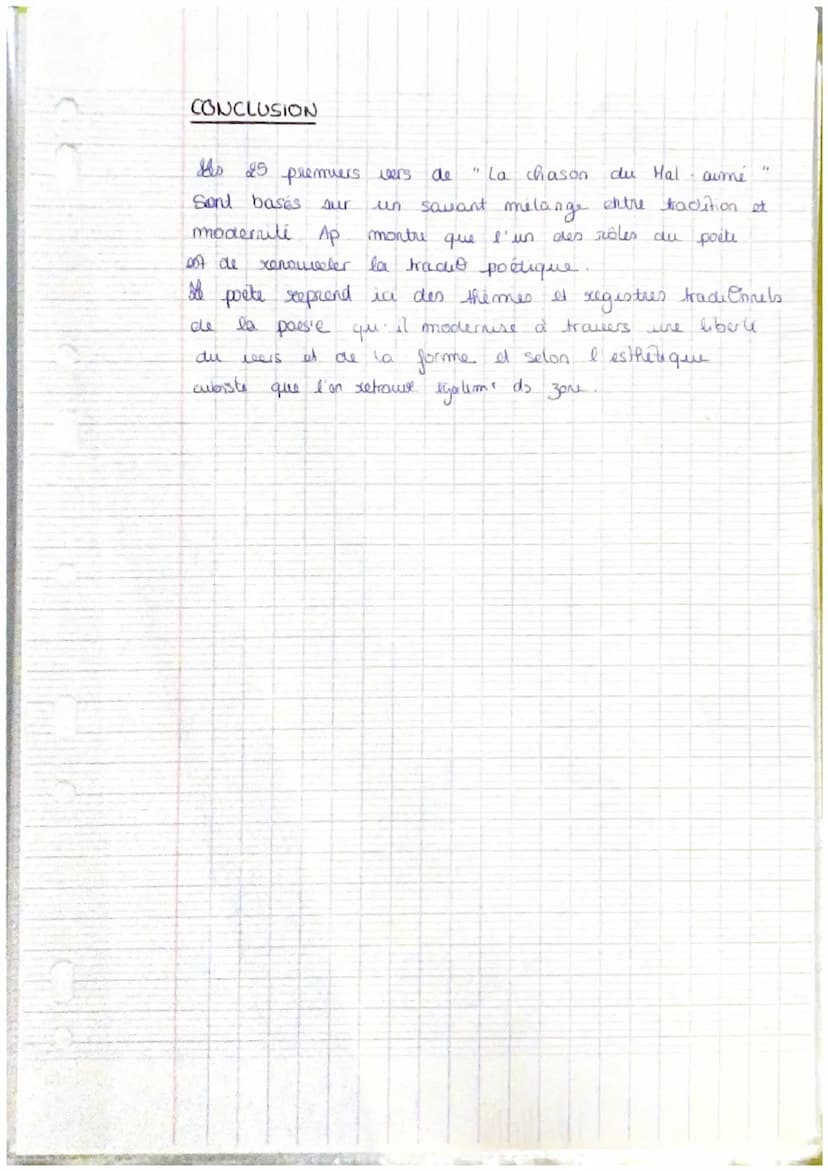 CONCLUSION
Les 25 premiers vers de "La chason du Mal-aimé"
Sont basés sur un savant mélange entre tradition et
modernité Ap montre que l'un des rôles du poète
est de renouveler la tradit° poétique.
poète reprend ici des thèmes et registres traditionnels
de la poesie qu'il modernise à travers une liberté
du vers et de la forme et selon l'esthétique
cubiste que l'on retrouve égalemt ds zone.